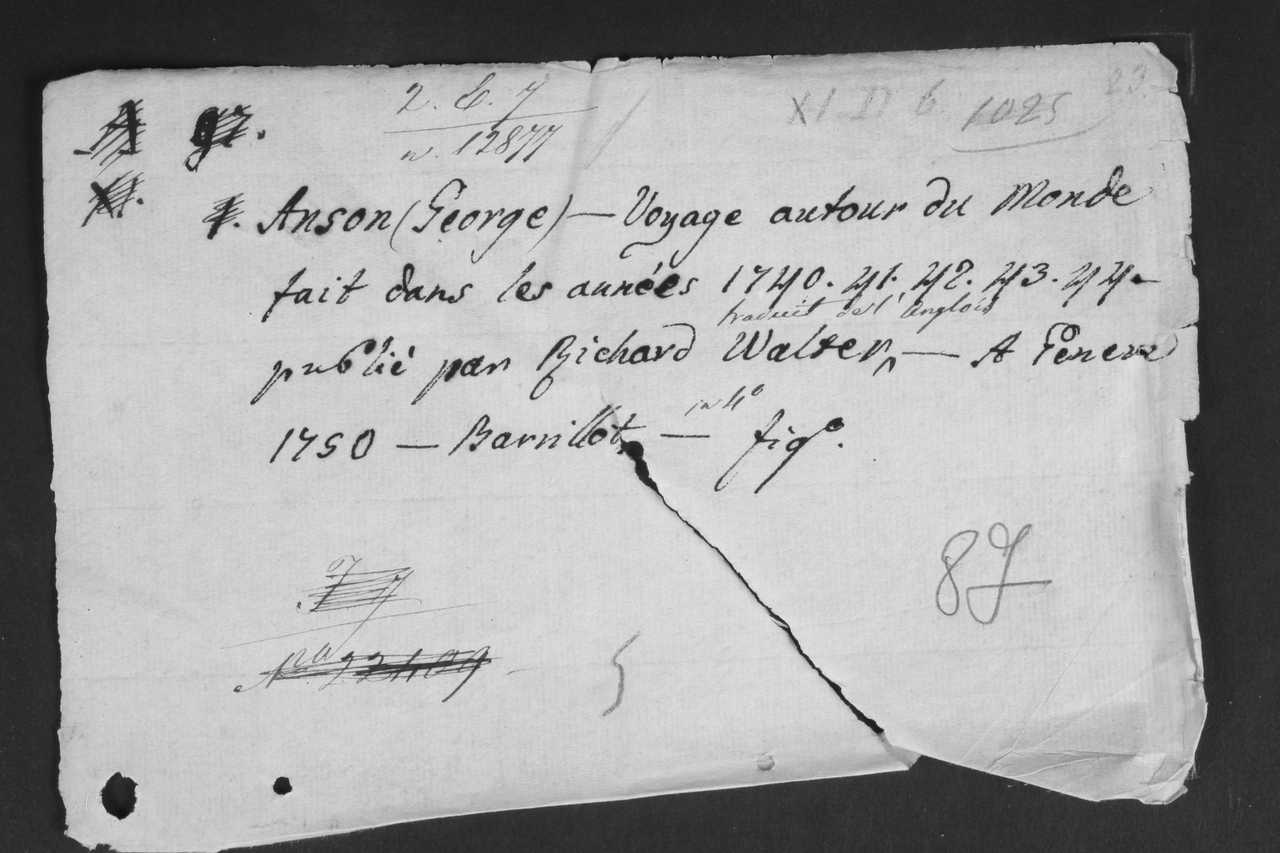 2. E. 7
n. 12877
XI. D 6 1025 23.
Anson (George) — Voyage autour du Monde
fait dans les années 1740. 41. 42. 43. 44 —
traduit de l'Anglois
publié par Richard Walter, — A Geneve
in 4°
1750 — Barrillot — fig°.
8J